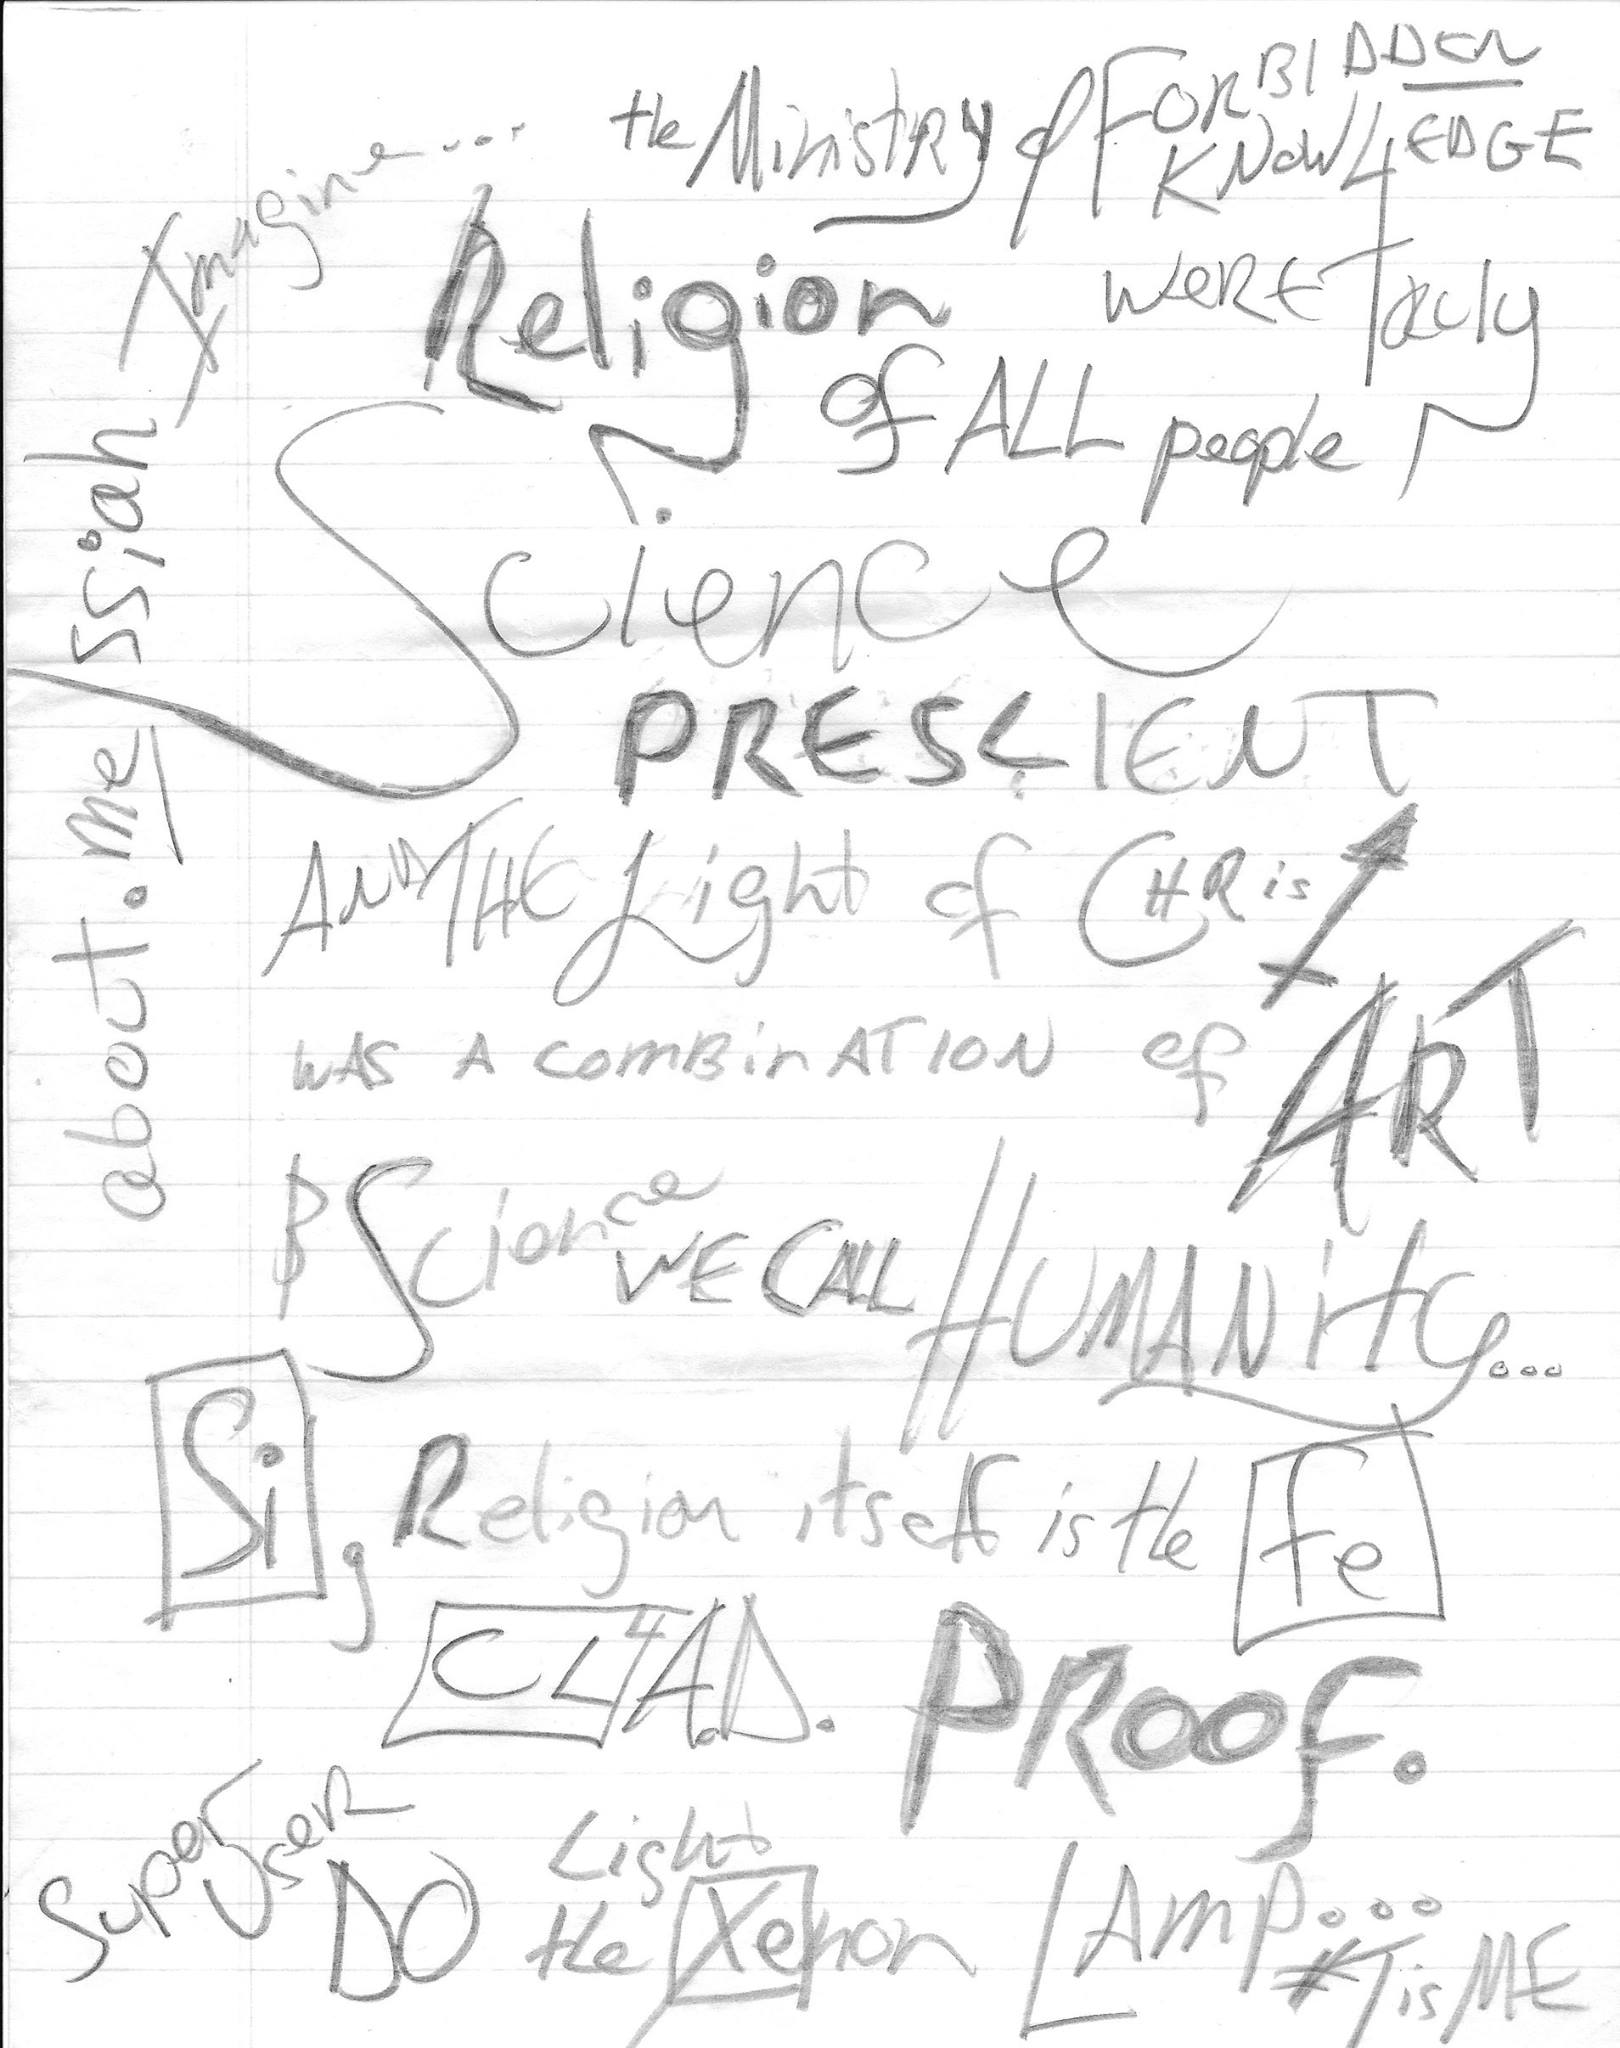 Imagine...
the MinistRy of FORBIDDEN
KNOW4EDGE
WERE Truly
Religion
of ALL people
Science
PRESCIENT
AND THE Light of CHRis
WAS A comBinATION of ART
& Science WE CALL HUMANity...
Si, Religion itself is the Fe
CL4A.D. PROOF.
Super User DO Light
the Xenon LAMP...
#TisME
about.me/ssiah